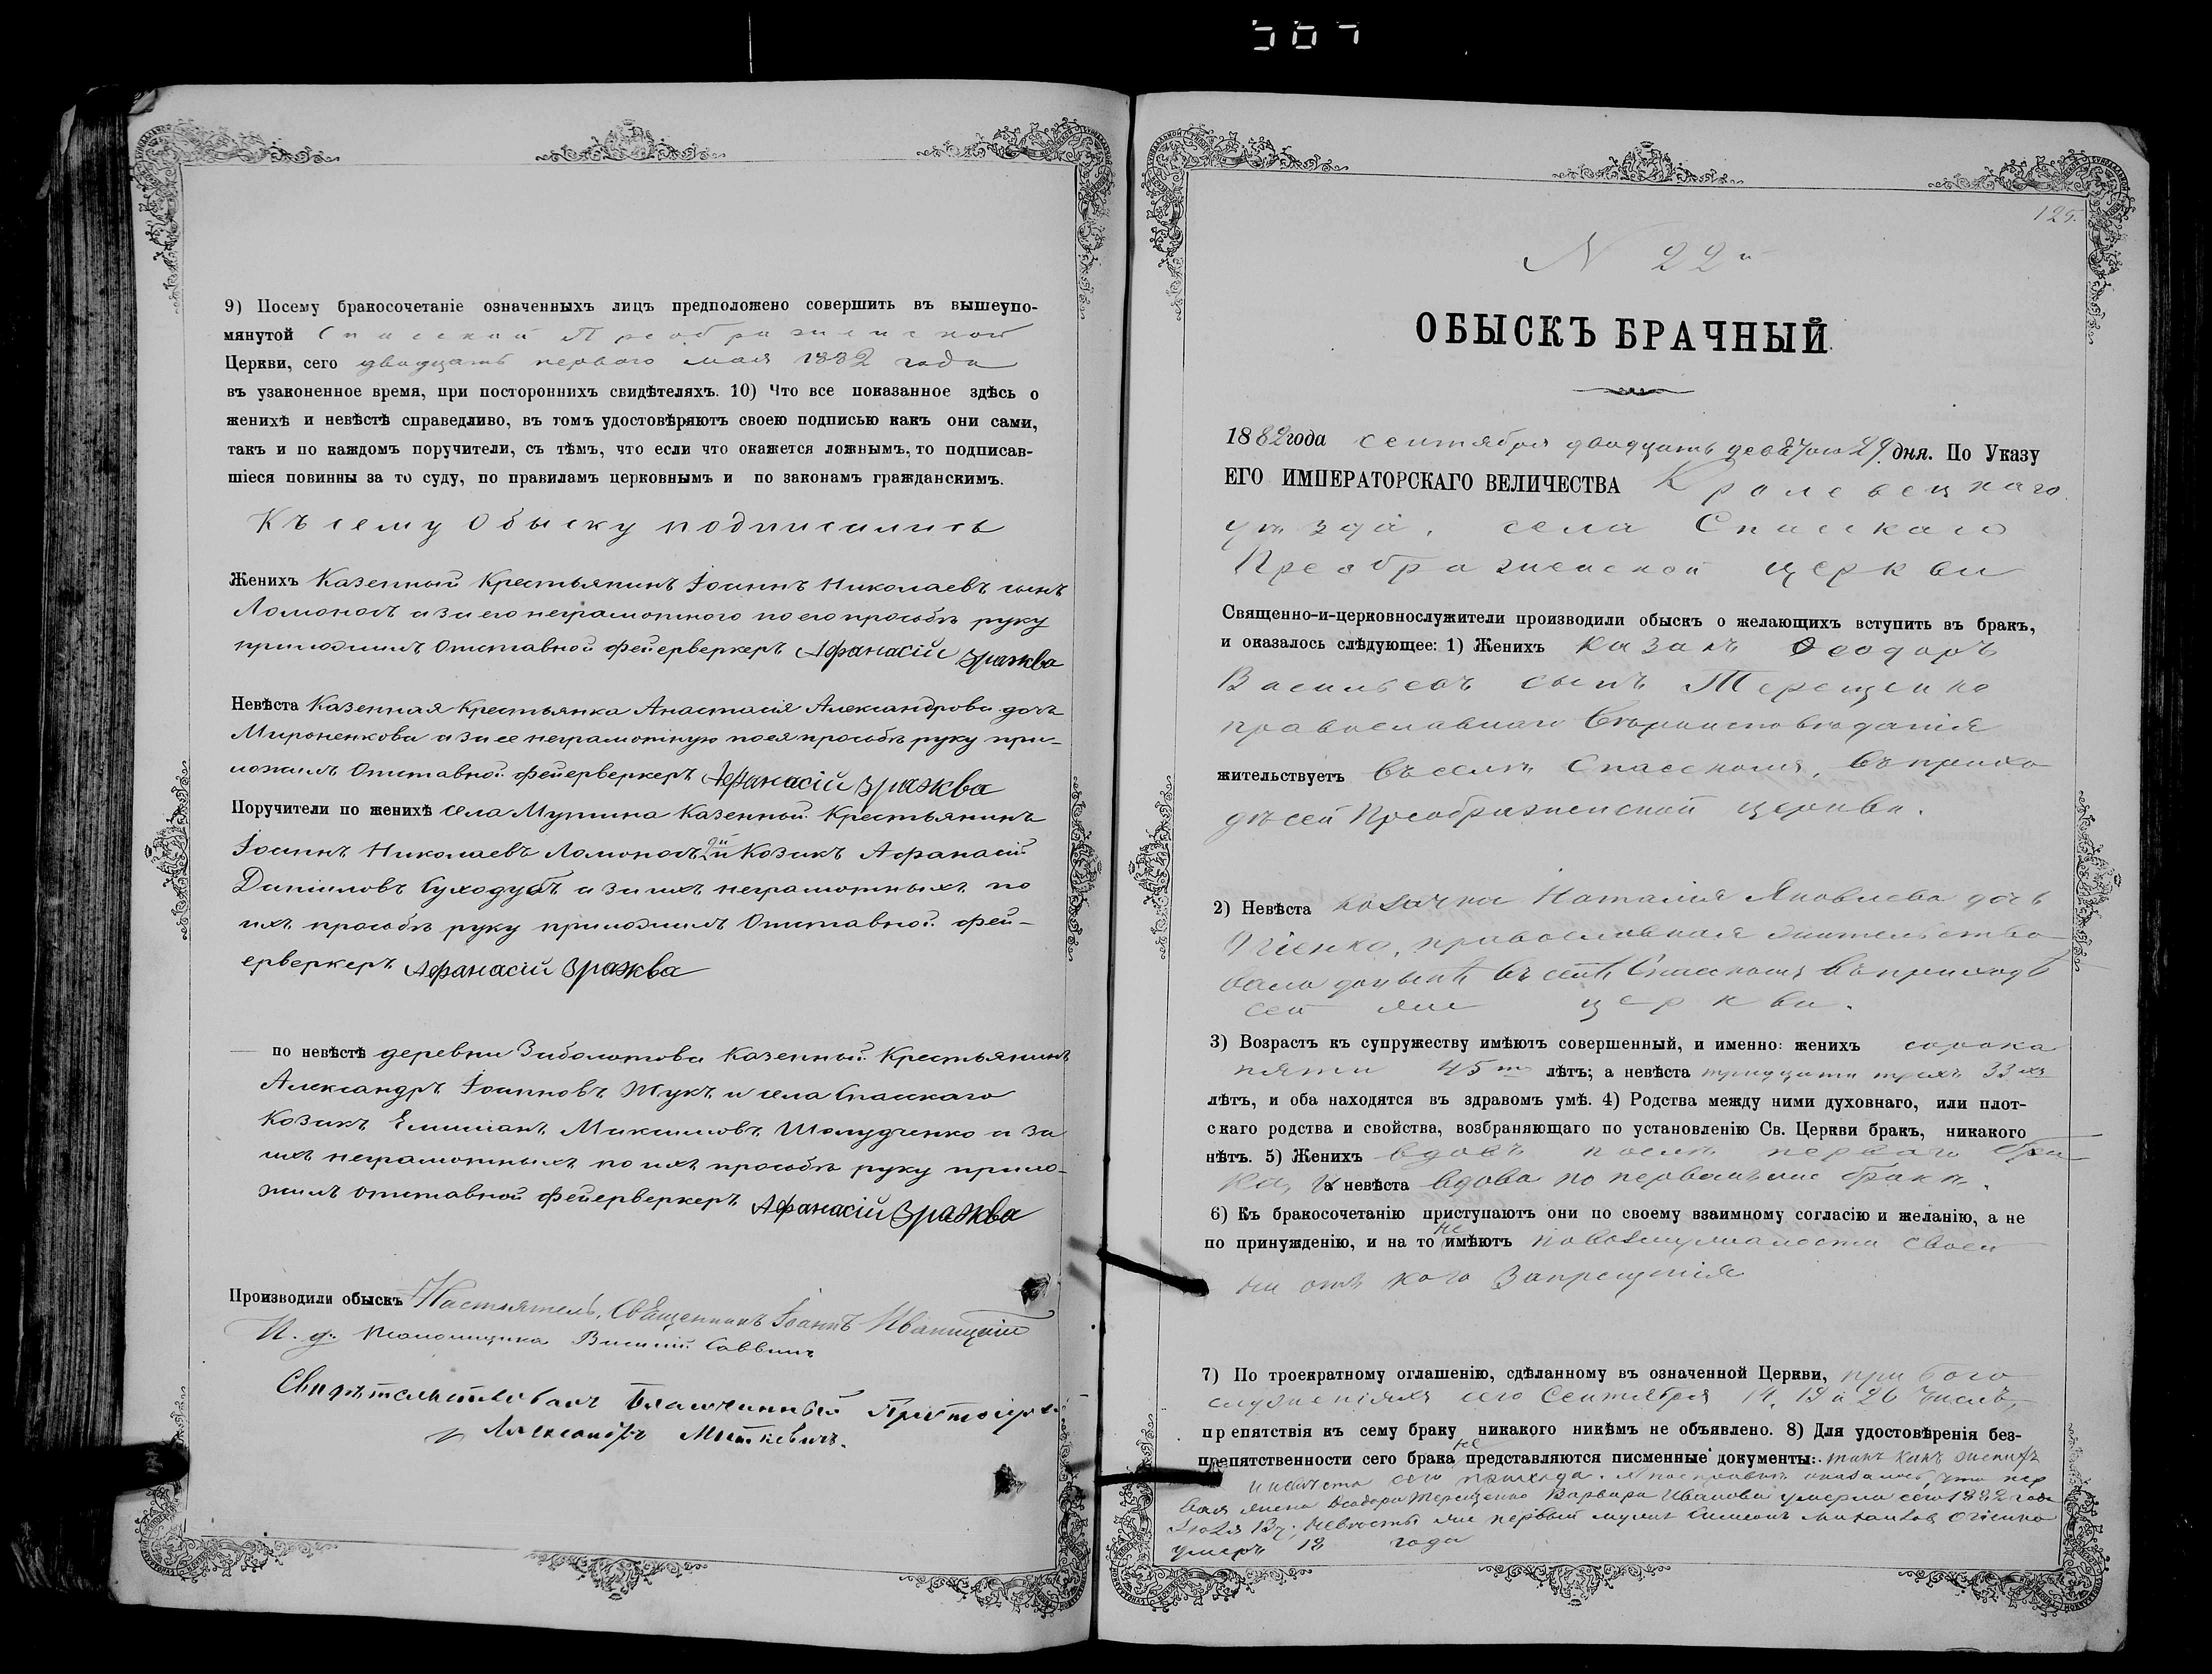 9) Посему бракосочетаніе означенныхъ лицъ предположено совершить въ вышеупо-
мянутой Спасской Преображенской
Церкви, сего двадцать первого мая 1882 года
въ узаконенное время, при постороннихъ свидѣтеляхъ. 10) Что все показанное здѣсь о
женихѣ и невѣстѣ справедливо, въ томъ удостовѣряютъ своею подписью какъ они сами,
такъ и по каждомъ поручители, съ тѣмъ, что если что окажется ложнымъ, то подписав-
шіеся повинны за то суду, по правиламъ церковнымъ и по законамъ гражданскимъ.
Къ сему Обыску подписались
Женихъ Казенный Крестьянинъ Іоаннъ Николаевъ сынъ
Ломоносъ а за его неграмотного по его просьбѣ руку
приложилъ Отставной фейерверкеръ Афанасій Зражва
Невѣста Казенная Крестьянка Анастасія Александрова дочь
Мироненкова а за ее неграмотную по ея просьбѣ руку при-
ложилъ Отставной фейерверкеръ Афанасій Зражва
Поручители по женихѣ села Мутина Казенной Крестьянинъ
Іоаннъ Николаевъ Ломоносъ и Козакъ Афанасій
Даніиловъ Суходубъ а за ихъ неграмотныхъ по
ихъ просьбѣ руку приложилъ Отставной фей-
ерверкеръ Афанасій Зражва
по невѣстѣ деревни Заболотова Казенный Крестьянинъ
Александръ Іоанновъ Жукъ и села Спасскаго
Козакъ Емиліанъ Максимовъ Шолудченко а за
ихъ неграмотныхъ по ихъ просьбѣ руку прило-
жилъ отставной фейерверкеръ Афанасій Зражва
Производили обыскъ Настоятель, Священникъ Іоаннъ Иваницкій
И. д. Псаломщика Василій Саввинъ
Свидѣтельствовалъ Благочинный Протоіерей
Александръ
125.
N 22й
ОБЫСКЪ БРАЧНЫЙ
1882 года сентября двадцать девятого 29 дня. По Указу
ЕГО ИМПЕРАТОРСКАГО ВЕЛИЧЕСТВА Кролевецкаго
уѣзда, села Спасскаго
Преображенской церкви
Священно-и-церковнослужители производили обыскъ о желающихъ вступить въ бракъ,
и оказалось слѣдующее: 1) Женихъ казакъ Ѳеодоръ
Васильевъ сынъ Терещенко
православнаго вѣроисповѣданія
жительствуетъ въ селѣ Спасскомъ, въ прихо
дѣ сей Преображенской церкви.
2) Невѣста козачка Наталія Яковлева дочь
Огіенко, православная жительство
вала донынѣ въ селѣ Спасскомъ въ приходѣ
сей же церкви.
3) Возрастъ къ супружеству имѣютъ совершенный, и именно: женихъ сорока
пяти 45ти лѣтъ; а невѣста тридцати трехъ 33хъ
лѣтъ, и оба находятся въ здравомъ умѣ. 4) Родства между ними духовнаго, или плот-
скаго родства и свойства, возбраняющаго по установленію Св. Церкви бракъ, никакого
нѣтъ. 5) Женихъ вдовъ послѣ перваго бра
ка, а невѣста вдова по первомъ же бракѣ.
6) Къ бракосочетанію приступаютъ они по своему взаимному согласію и желанію, а не
по принужденію, и на то не имѣютъ по возмужалости своей
ни отъ кого запрещенія
7) По троекратному оглашенію, сдѣланному въ означенной Церкви, при бого
служеніяхъ сего Сентября 14, 19 и 26 числъ,
препятствія къ сему браку никакого никѣмъ не объявлено. 8) Для удостовѣренія без-
препятственности сего брака не представляются писменные документы: такъ какъ женихъ
и невѣста сего прихода. оказалось, что пер
вая жена Ѳеодора Терещенко Варвара Иванова умерла сего 1882 года
Іюля 13 ч. Невѣсты же первый мужъ Симеонъ Огіенко
умеръ 18 года